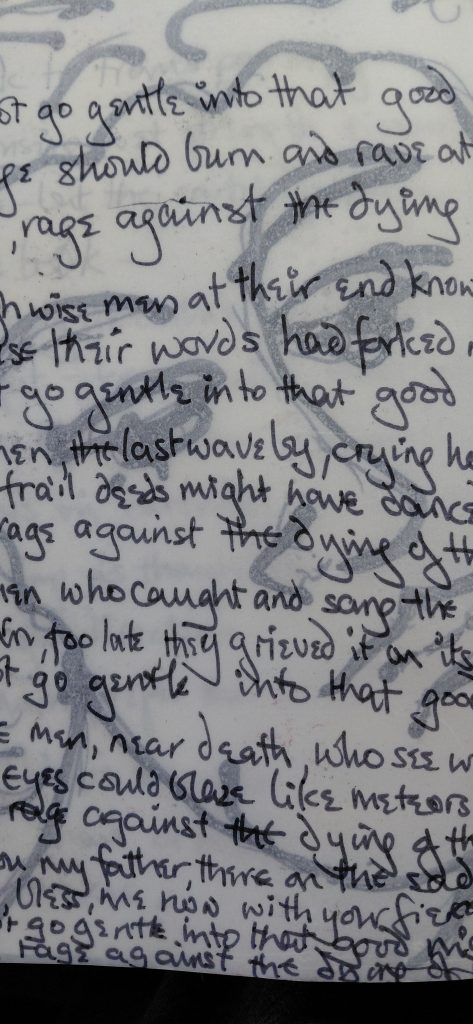 go gentle into that good
should burn and rave at
, rage against the dying
wise men at their end know
their words had forked
go gentle into that good
men, the last wave by, crying
frail deeds might have
rage against the dying of
men who caught and sang the
, too late they grieved it on its
go gentle into that
men, near death, who see
eyes could blaze like meteors
rage against the dying of
my father, there on the sad
, bless, me now with your
go gentle into that good
rage against the dying of